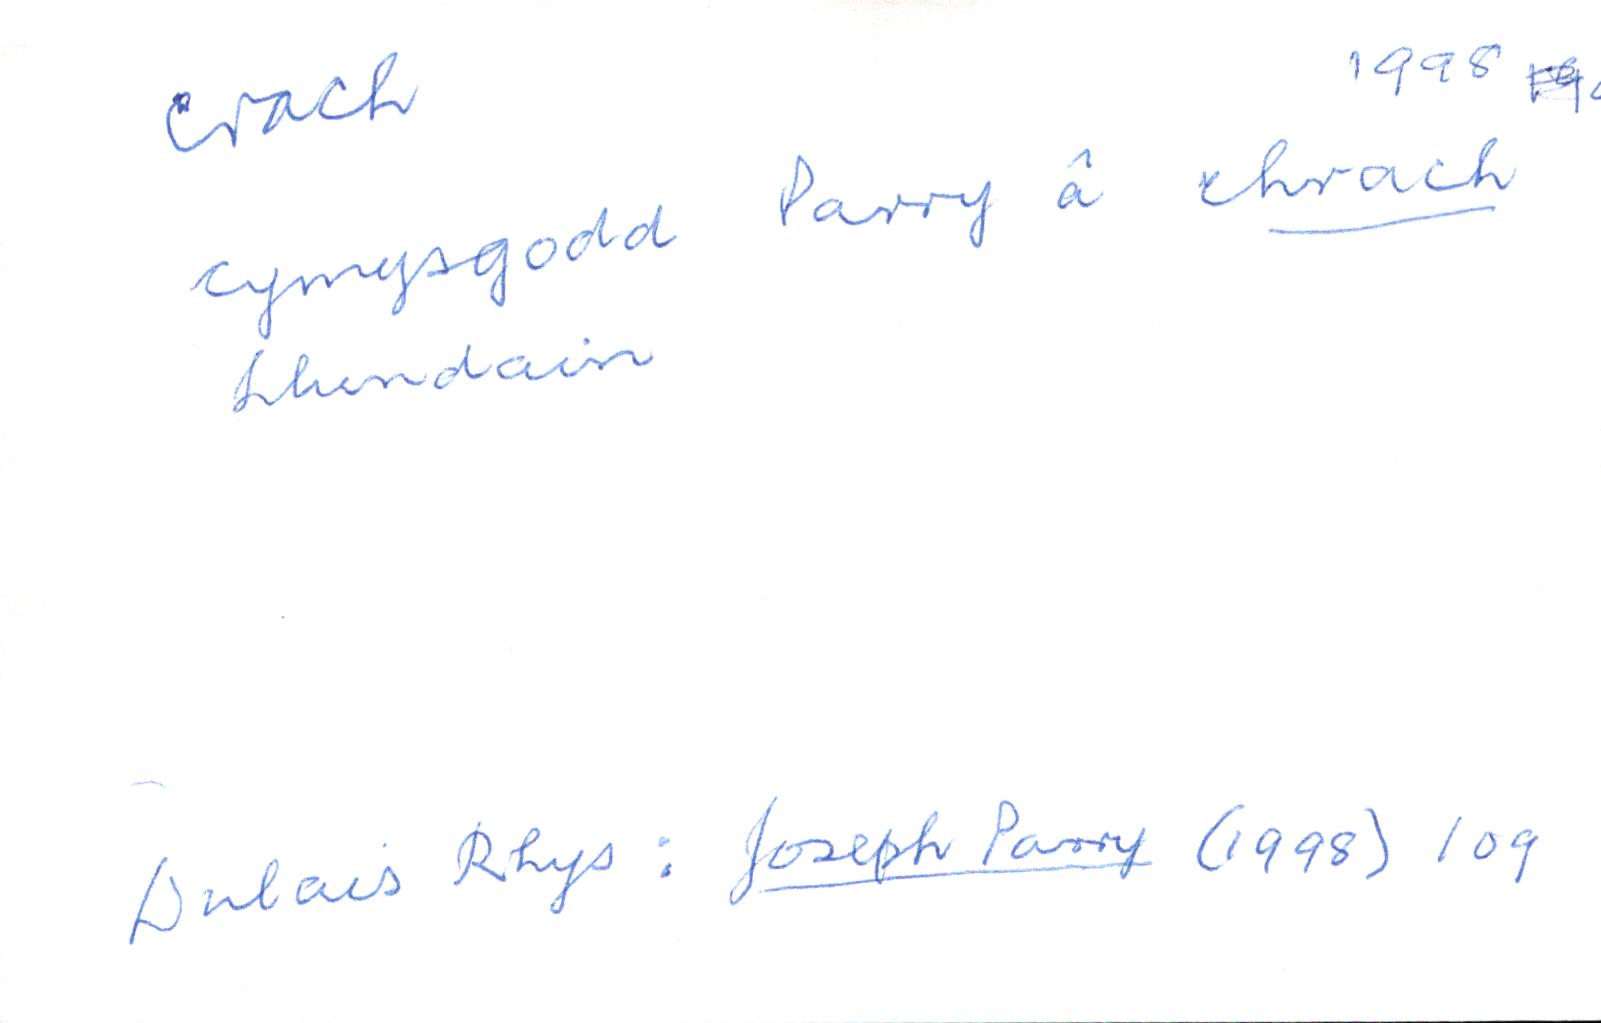 crach 1998
cymysgodd Parry â chrach
Llundain
Dulais Rhys : Joseph Parry (1998) 109